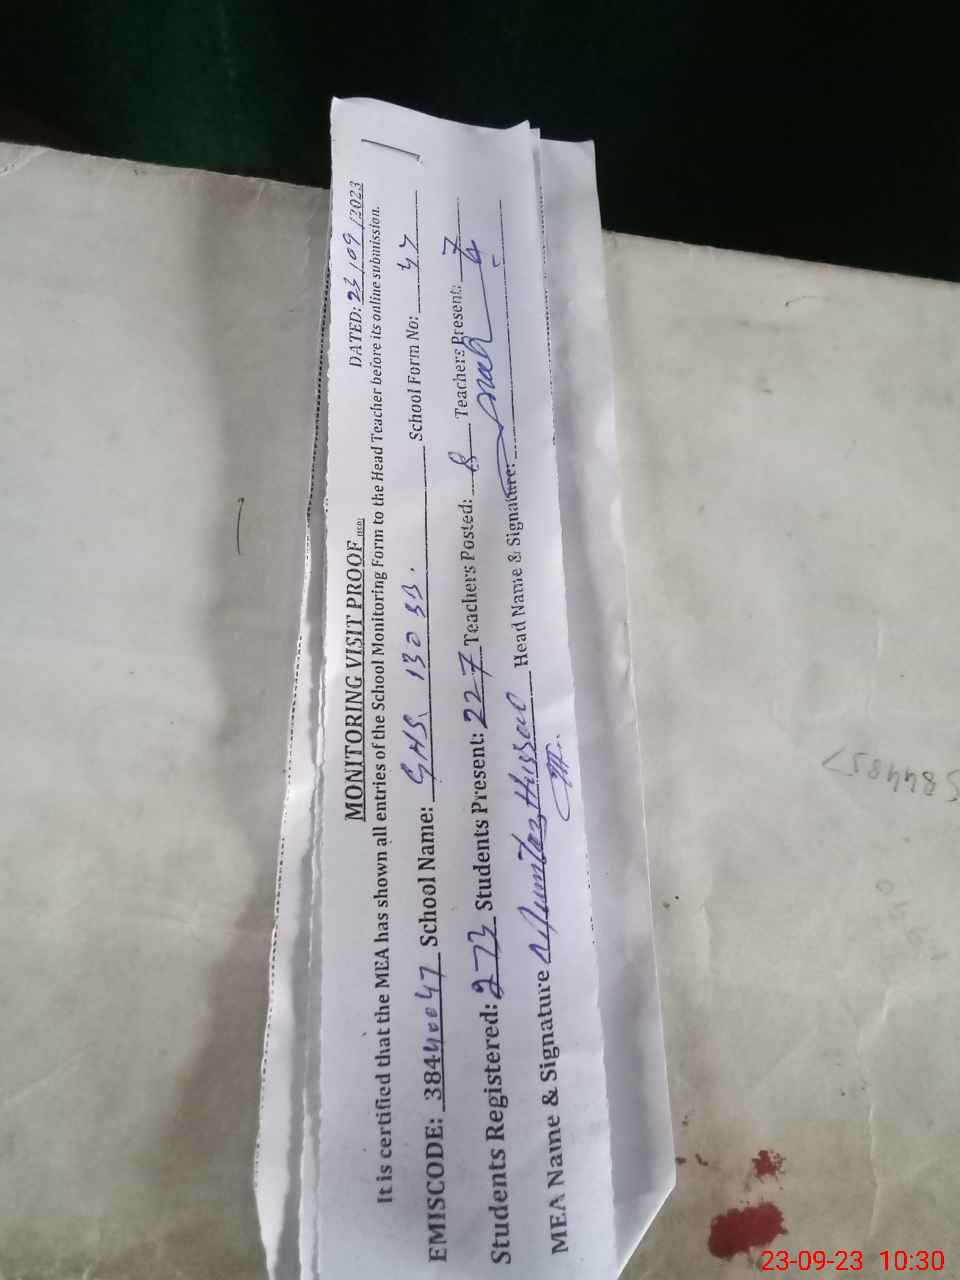 DATED: 23/09/2023
MONITORING VISIT PROOF
It is certified that the MEA has shown all entries of the School Monitoring Form to the Head Teacher before its online submission.
EMISCODE: 38440047 School Name: GHS 130 SB. School Form No: 47
Students Registered: 273 Students Present: 227 Teachers Posted: 8 Teachers Present: 7
MEA Name & Signature Mumtaz Hussain Head Name & Signature:
584485
23-09-23 10:30